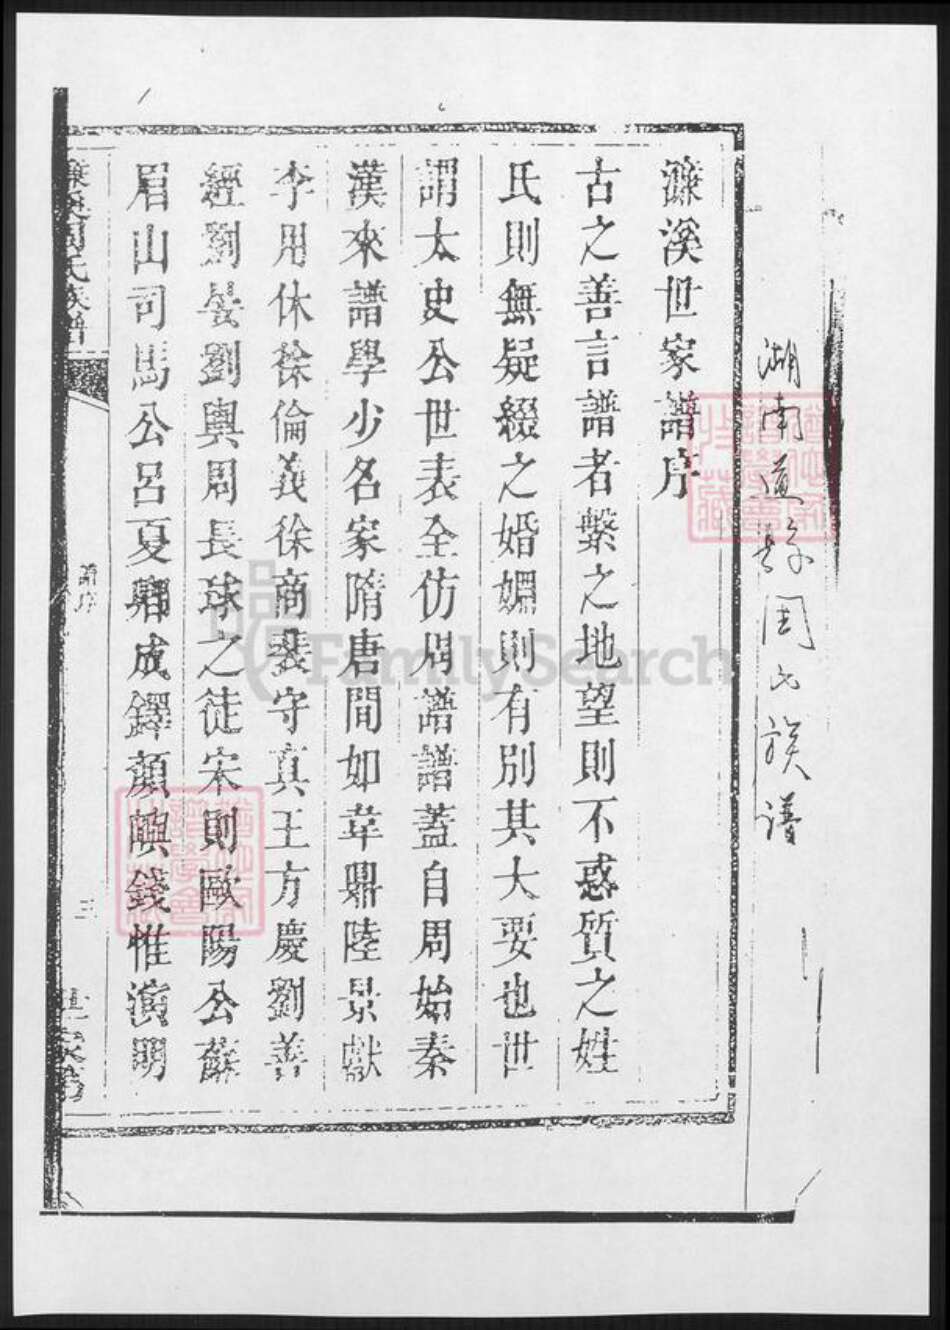 湖南道县周氏族谱
濂溪世家譜序
古之善言譜者繫之地望則不惑質之姓
氏則無疑綴之婚姻則有別其大要也世
謂太史公世表全仿周譜譜蓋自周始秦
漢來譜學少名家隋唐間如韋鼎陸景獻
李用休徐倫義徐商裴守真王方慶劉善
經劉晏劉輿周長球之徒宋則歐陽公蘇
眉山司馬公呂夏卿成鐸顏嶼錢惟演明
濂溪周氏族譜
譜序
三
FamilySearch